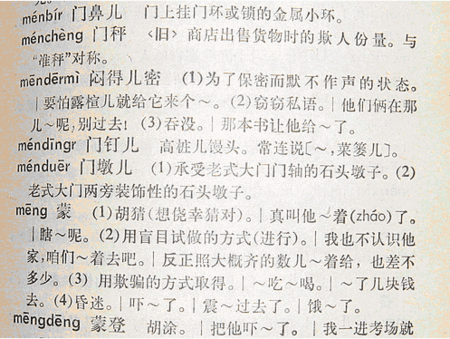 ménbír 门鼻儿 门上挂门环或锁的金属小环.
ménchèng 门秤 〈旧〉商店出售货物时的欺人份量。与
“准秤”对称。
mēndērmì 闷得儿密 (1)为了保密而默不作声的状态。
｜要怕露馅儿就给它来个～。(2)窃窃私语。｜他们俩在那
儿～呢,别过去! (3)吞没。｜那本书让他给～了。
méndīngr 门钉儿 高桩儿馒头。常连说[～,菜篓儿]。
ménduēr 门墩儿 (1)承受老式大门门轴的石头墩子。(2)
老式大门两旁装饰性的石头墩子。
mēng 蒙 (1)胡猜(想侥幸猜对)。｜真叫他～着(zháo)了。
｜瞎～呢。(2)用盲目试做的方式(进行)。｜我也不认识他
家,咱们～着去吧。｜反正照大概齐的数儿～着给,也差不
多少。(3) 用欺骗的方式取得。｜～吃～喝。｜～了几块钱
去。(4)昏迷。｜吓～了。｜震～过去了。｜饿～了。
mēngdēng 蒙登 胡涂。｜把他吓～了。｜我一进考场就